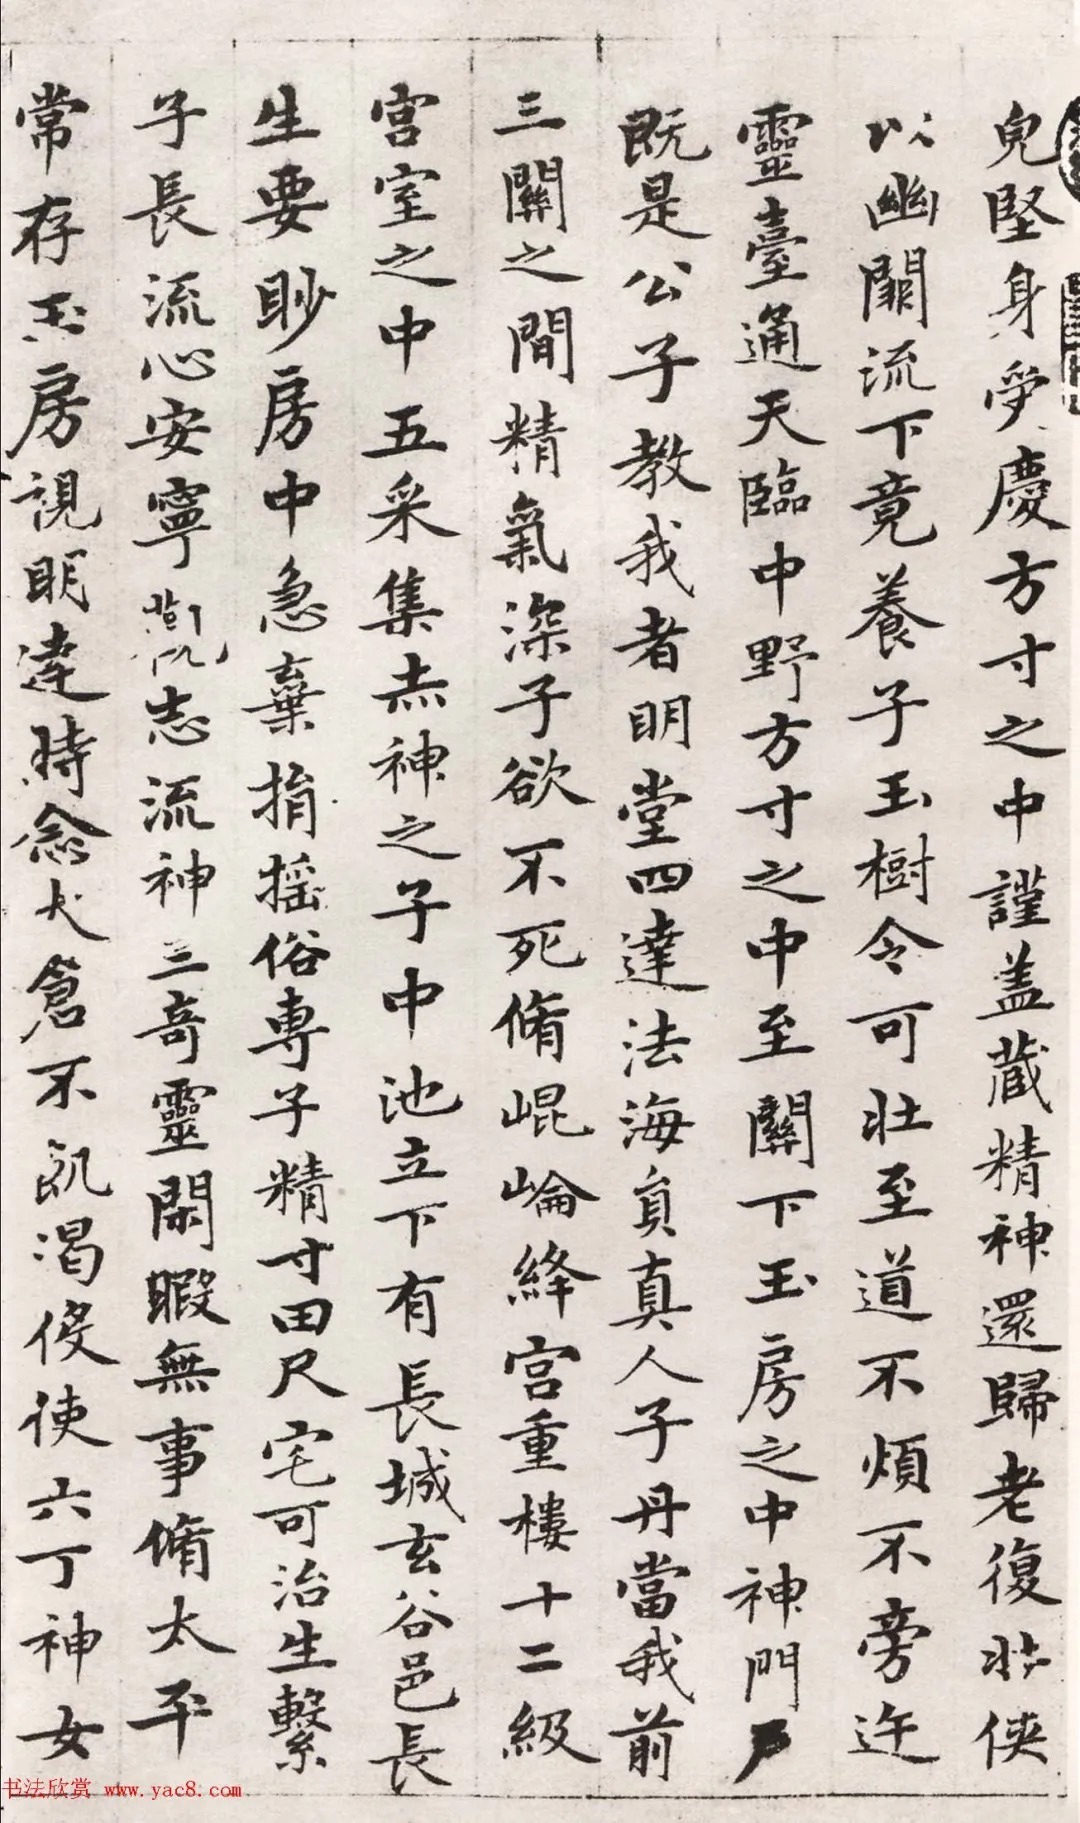 皃堅身受慶方寸之中謹盖蔵精神還歸老復壮侠
以幽闕流下竟養子玉樹令可壮至道不煩不旁迕
靈臺通天臨中野方寸之中至關下玉房之中神門戶
既是公子教我者明堂四達法海負真人子丹當我前
三關之間精氣深子欲不死脩崐崘絳宫重樓十二級
宫室之中五采集赤神之子中池立下有長城玄谷邑長
生要眇房中急棄捐摇俗専子精寸田尺宅可治生繫
子長流心安寧志流神三奇靈閑暇無事脩太平
常存玉房視明達時念大倉不飢渴伇使六丁神女
书法欣赏 www.yac8.com